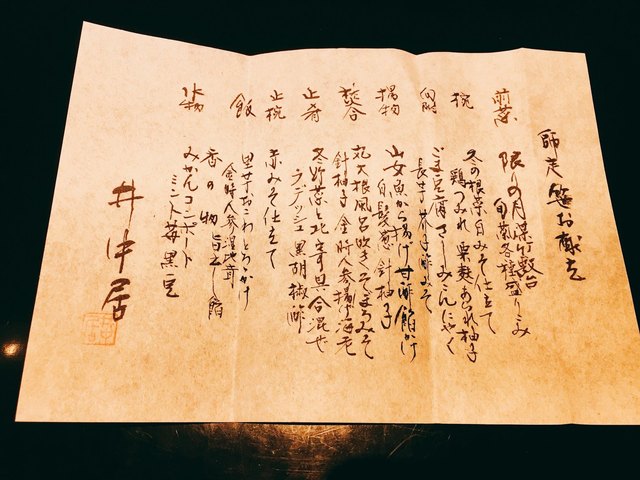 師走 献立
前菜 限りの月 青竹敷台
旬菜各種盛り込み
椀 冬の根菜白みそ仕立て
鶏つみれ 粟麩 あられ柚子
向附 ごま豆腐 さしみこんにゃく
長芋 芥子酢みそ
揚物 山女魚から揚げ 甘酢餡かけ
白髪葱 針柚子
炊合 丸大根風呂吹き ごまみそ
針柚子 金時人参 揚げ海老
止肴 冬野菜と北寄貝合混ぜ
ラデッシュ 黒胡椒酢
止椀 赤みそ仕立て
飯 里芋おこわ とろろかけ
金時人参 湿地茸
香の物 旨だし餡
水物 みかんコンポート
ミント 苺 黒豆
井中居